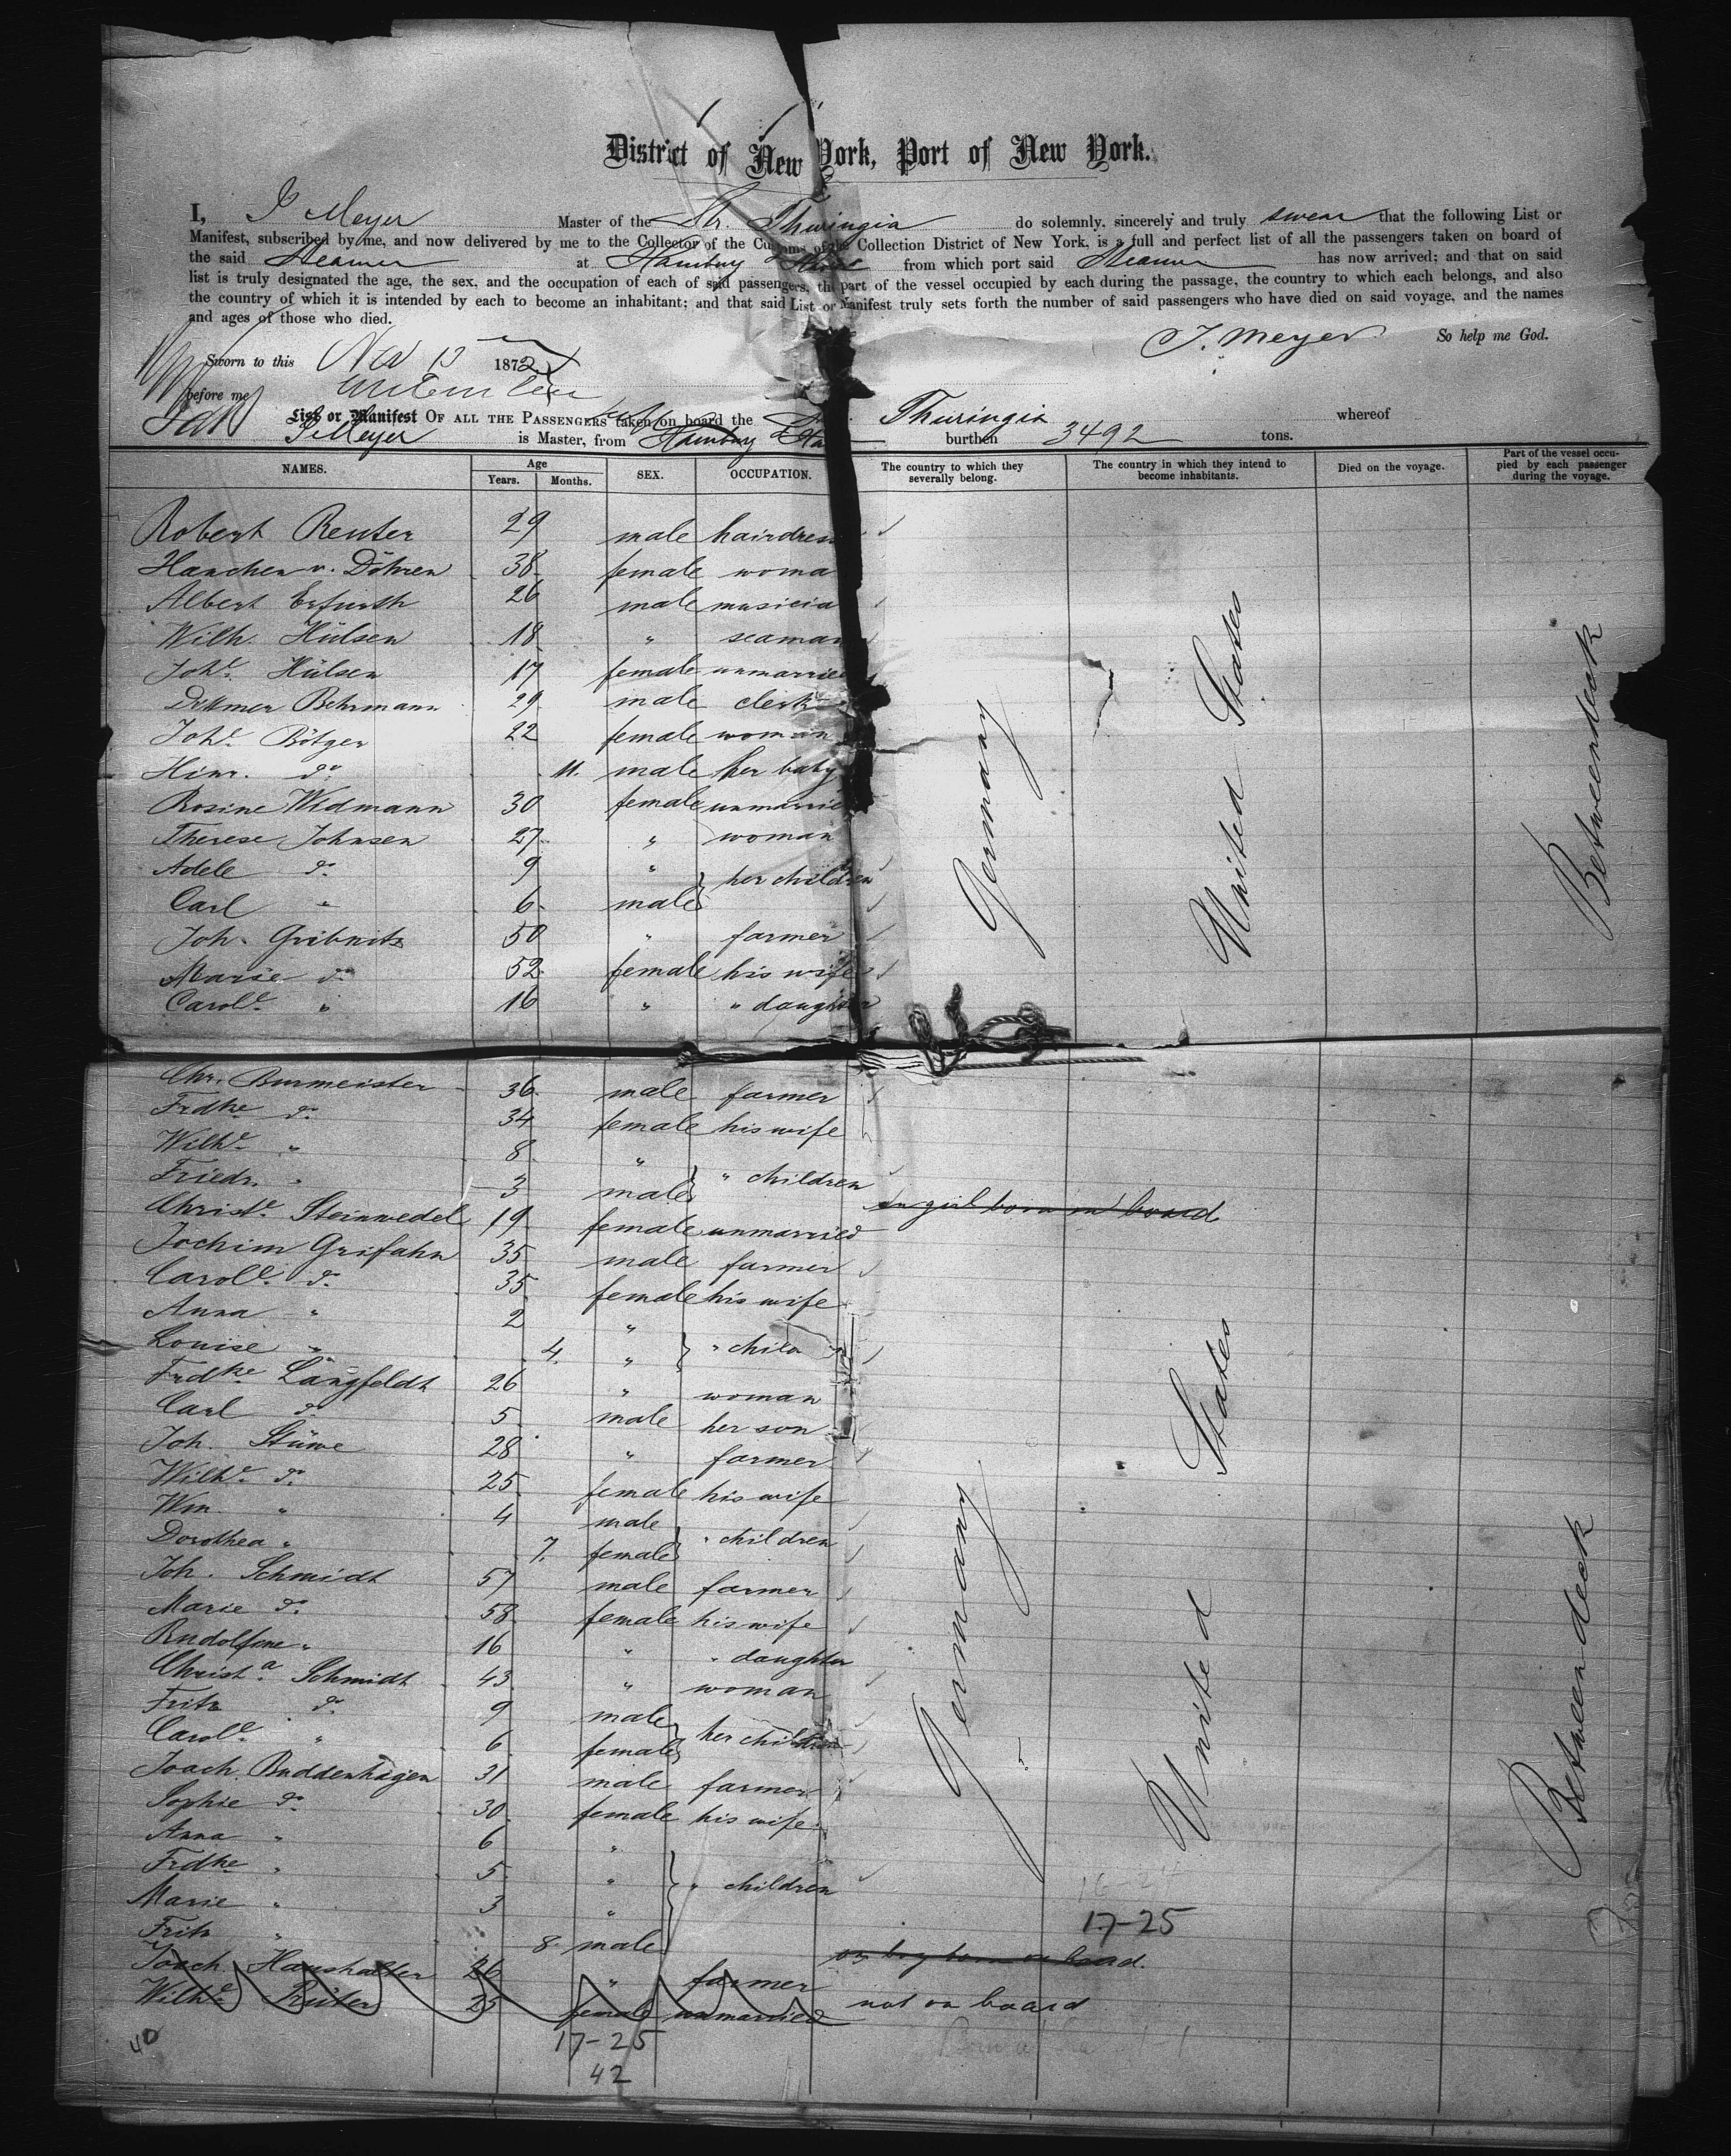 District of New York, Port of New York.
I, J Meyer Master of the Str. Thuringia do solemnly, sincerely and truly swear that the following List or
Manifest, subscribed by me, and now delivered by me to the Collector of the Customs of the Collection District of New York, is a full and perfect list of all the passengers taken on board of
the said Steamer at Hamburg & Havre from which port said Steamer has now arrived; and that on said
list is truly designated the age, the sex, and the occupation of each of said passengers, the part of the vessel occupied by each during the passage, the country to which each belongs, and also
the country of which it is intended by each to become an inhabitant; and that said List or Manifest truly sets forth the number of said passengers who have died on said voyage, and the names
and ages of those who died.
J. Meyer So help me God.
Sworn to this Nov 13 1872
before me
List or Manifest OF ALL THE PASSENGERS taken on board the Str. Thuringia whereof
J. Meyer is Master, from Hamburg & burthen 3492 tons.
NAMES. Age Years. Months. SEX. OCCUPATION. The country to which they severally belong. The country in which they intend to become inhabitants. Died on the voyage. Part of the vessel occupied by each passenger during the voyage.
Robert Reuter 29 male hairdress
Hanchen v. Döhren 38 female woma
Albert Erfurth 26 male musicia
Wilh. Hülsen 18 " seaman
Johe. Hülsen 17 female unmarrie
Dittmer Behrmann 29 male clerk
Johe. Bötger 22 female woman
Hinr. do 11. male her baby
Rosine Widmann 30 female unmarrie
Therese Johnsen 27 " woman
Adele do 9 " } her children
Carl " 6 male
Joh. Gribnitz 50 " farmer
Marie do 52 female his wife
Carole. " 16 " " daughter
Germany United States Betweendeck
Chr. Burmeister 36 male farmer
Frdke do 34 female his wife
Wilhe. " 8 " } " children
Friedr. " 3 male
Christe. Steinwedel 19 female unmarried
girl born on board
Jochim Grifahn 35 male farmer
Carole. do 35 female his wife
Anna " 2 " } " child
Louise " 4. "
Frdke Langfeldt 26 " woman
Carl do 5 male her son
Joh. Stüwe 28 " farmer
Wilhe. do 25 female his wife
Wm. " 4 male } " children
Dorothea " 7. female
Joh. Schmidt 57 male farmer
Marie do 58 female his wife
Rudolfine " 16 " " daughter
Christa. Schmidt 43 " woman
Fritz do 9 male } her children
Carole. " 6 female
Joach. Buddenhagen 31 male farmer
Sophie do 30 female his wife
Anna " 6 " } " children
Frdke " 5 "
Marie " 3 "
Fritz " 8 male
boy born on board.
Joach. Haushalter 26 " farmer
Wilhe. Rüter 25 female unmarried not on board
Germany United States Betweendeck
17-25
40
17-25
42